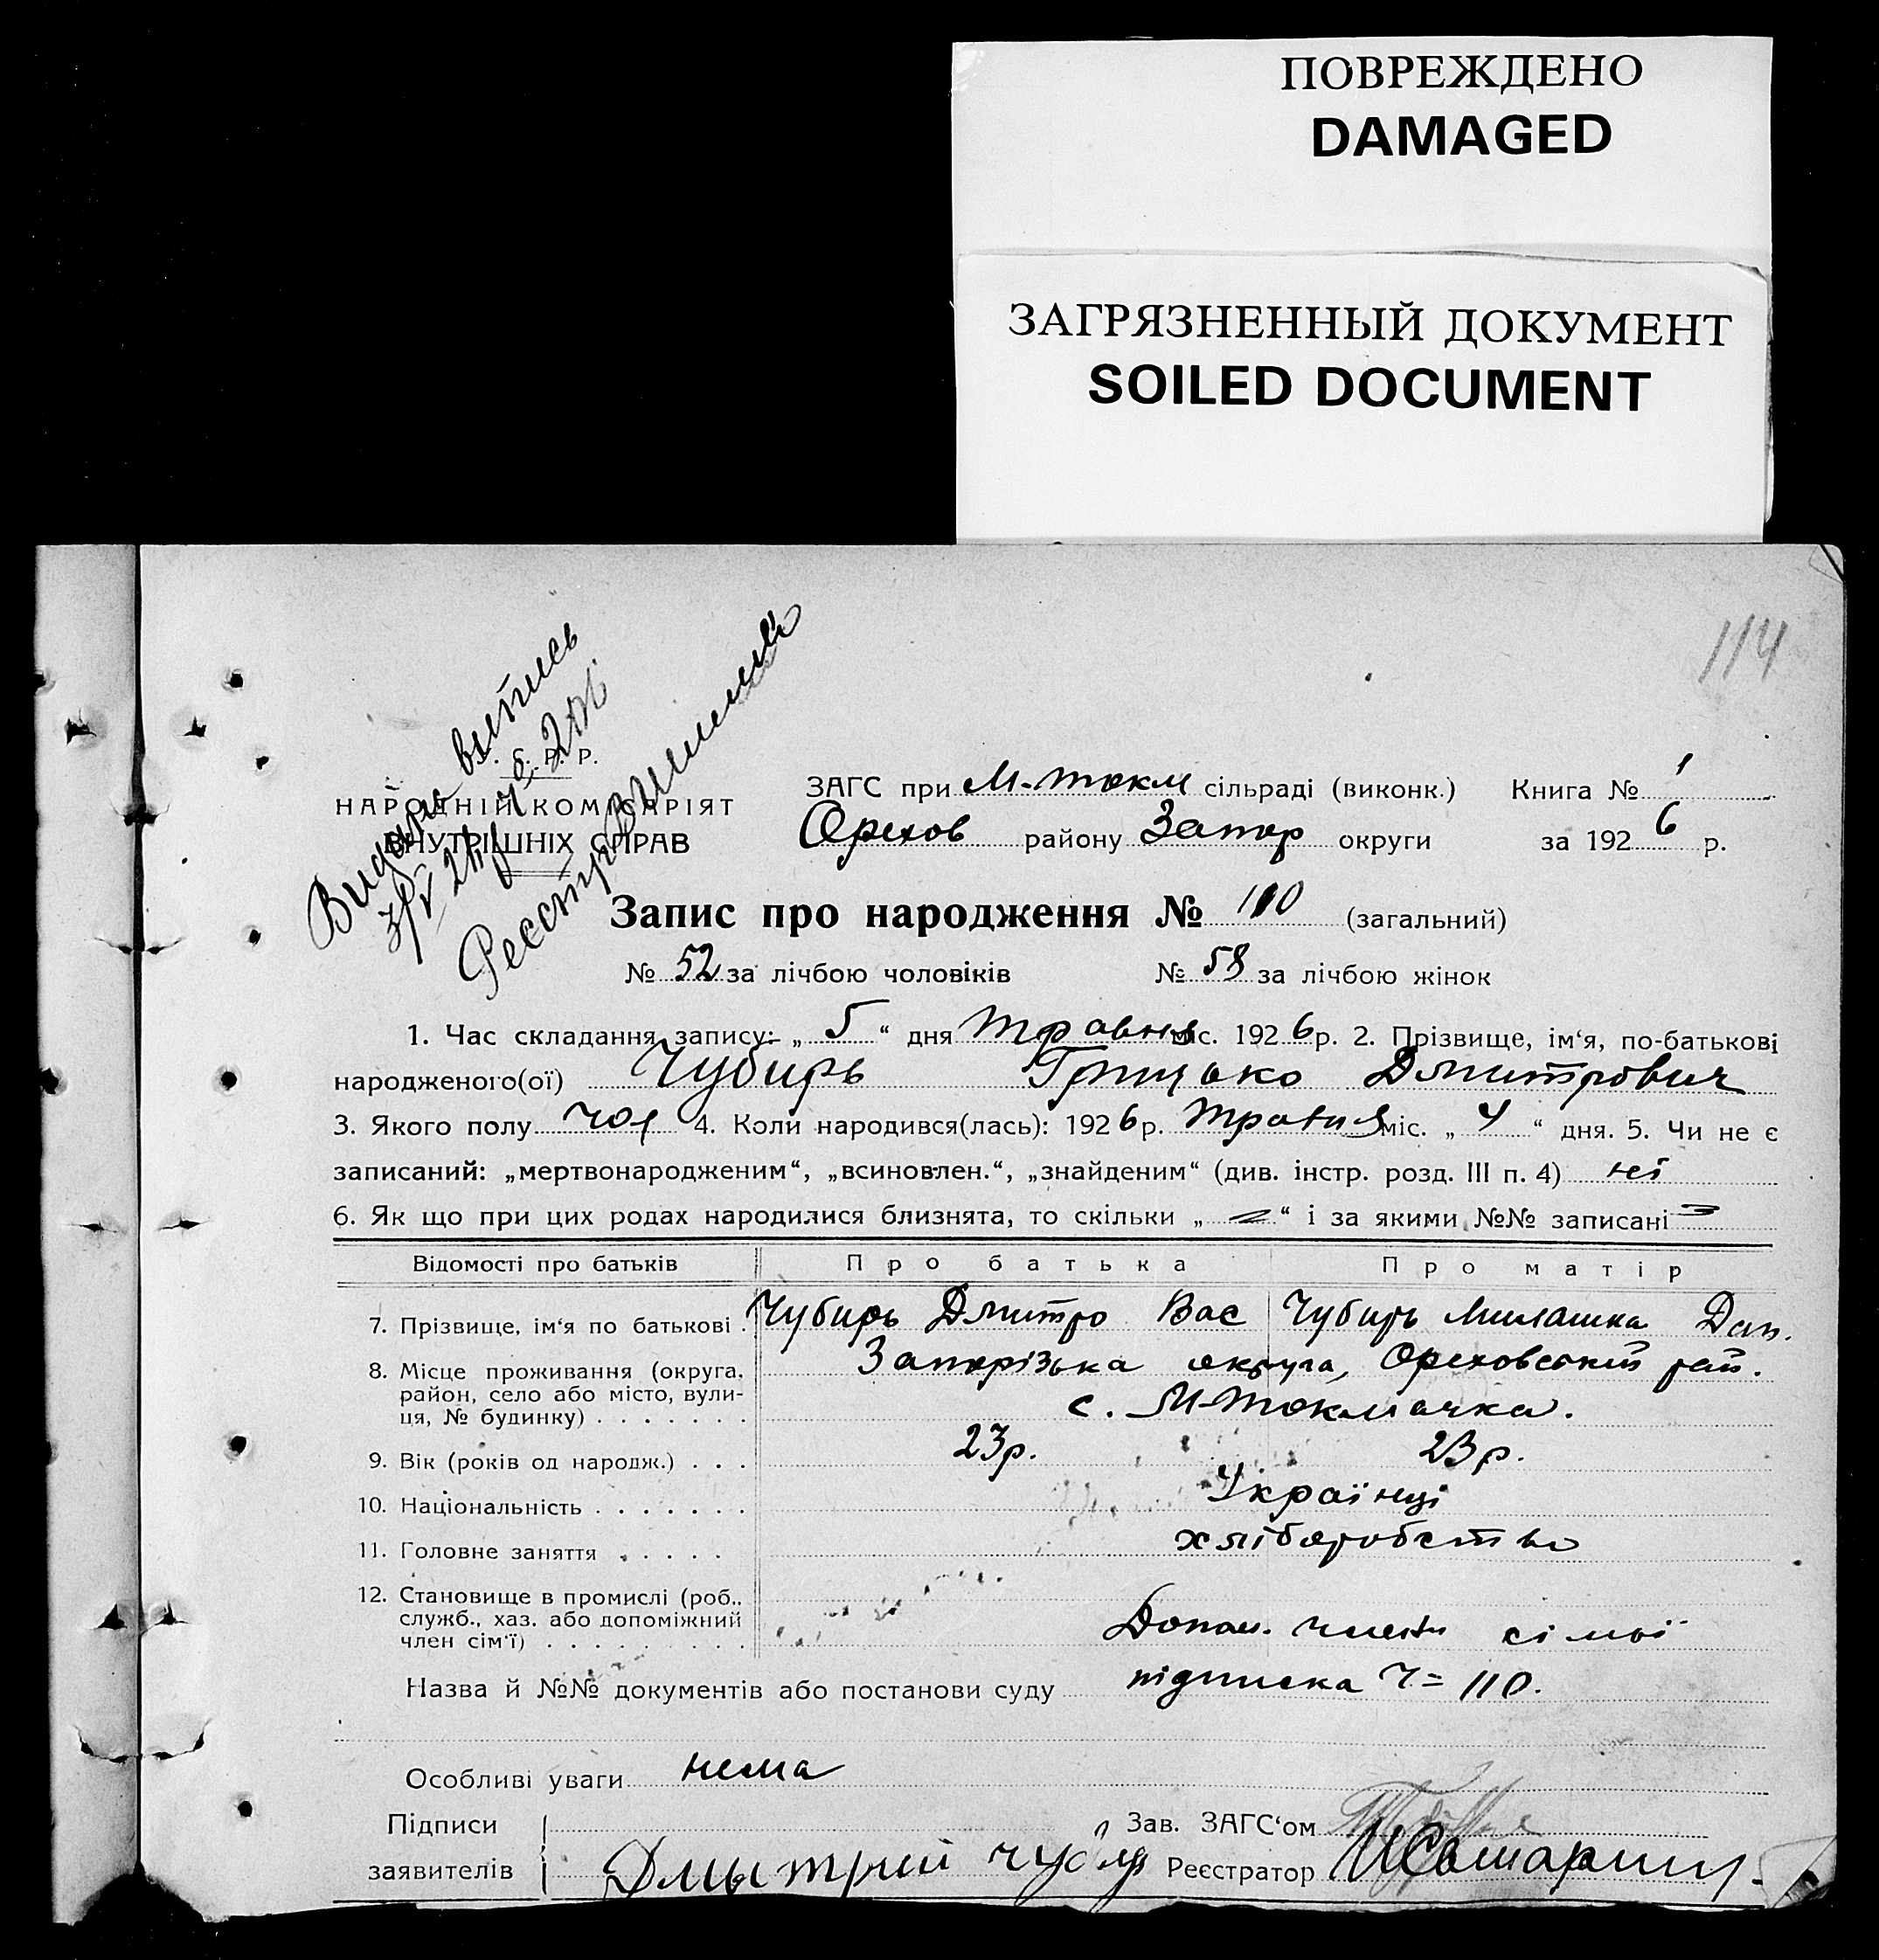 ПОВРЕЖДЕНО
DAMAGED
ЗАГРЯЗНЕННЫЙ ДОКУМЕНТ
SOILED DOCUMENT
114
Видано витпись
С. Р. Р.
НАРОДНІЙ КОМІСАРІЯТ
ВНУТРІШНІХ СПРАВ
Реєстр
ЗАГС при М-токм сільраді (виконк.) Книга № 1
Орехов району Запор округи за 1926 р.
Запис про народження № 110 (загальний)
№ 52 за лічбою чоловіків № 58 за лічбою жінок
1. Час складання запису: „ 5 “ дня травня міс. 1926 р. 2. Прізвище, ім‘я, по-батькові
народженого(ої) Чубирь Грицько Дмитрович
3. Якого полу чол 4. Коли народився(лась): 1926 р. травня міс. „ 4 “ дня. 5. Чи не є
записаний: „мертвонародженим“, „всиновлен.“, „знайденим“ (див. інстр. розд. III п. 4) ні
6. Як що при цих родах народилися близнята, то скільки „ “ і за якими №№ записані
Відомості про батьків Про батька Про матір
7. Прізвище, ім‘я по батькові . Чубирь Дмитро Вас Чубирь Милашка Дан.
8. Місце проживання (округа, район, село або місто, вули-ця, № будинку) . . . . . . . Запорізька округа, Ореховський рай.
с. М-токмачка.
9. Вік (років од народж.) . . . 23р. 23р.
10. Національність . . . . . . . Українці
11. Головне заняття . . . . . хліборобство
12. Становище в промислі (роб., служб., хаз. або допоміжний член сім‘ї) . . . . . . . . . Допом. члени сімьї
Назва й №№ документів або постанови суду підписка Ч= 110.
Особливі уваги нема
Підписи Зав. ЗАГС‘ом
заявителів Дмытрий Реєстратор